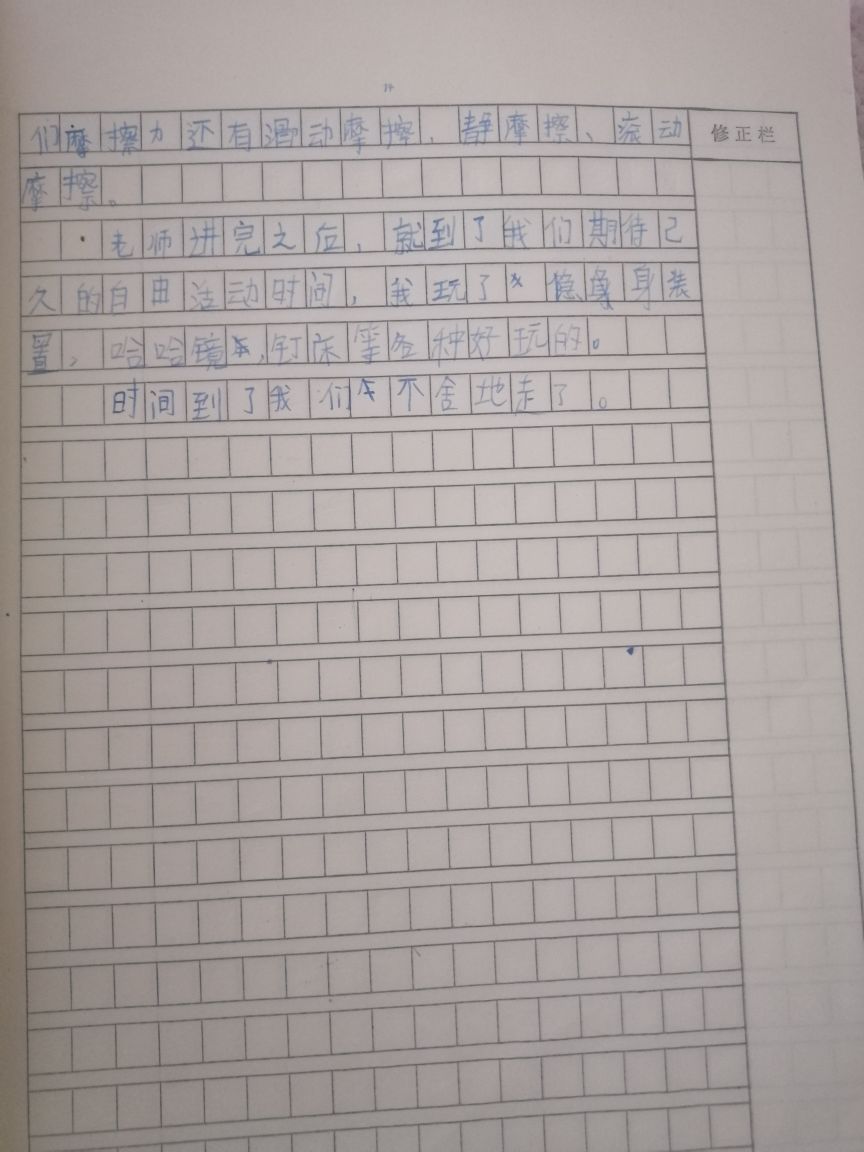 们摩擦力还有滑动摩擦、静摩擦、滚动
修正栏
摩擦。
老师讲完之后，就到了我们期待己
久的自由活动时间，我玩了隐身装
置，哈哈镜，钉床等各种好玩的。
时间到了我们不舍地走了。